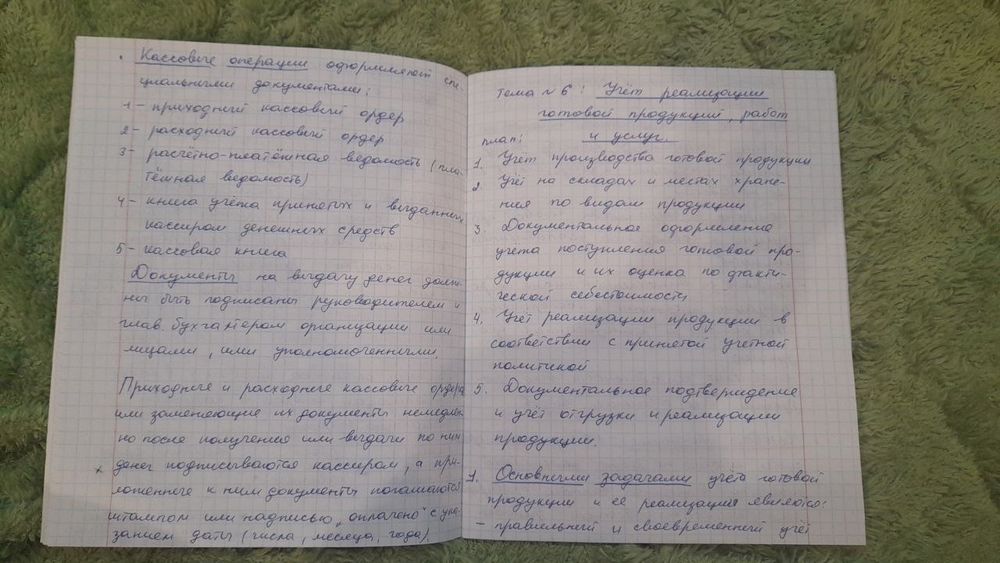 Кассовые операции оформляют спе-
циальными документами:
1 – приходный кассовый ордер
2 – расходный кассовый ордер
3 – расчётно-платёжная ведомость (пла-
тёжная ведомость)
4 – книга учёта принятых и выданных
кассиром денежных средств
5 – кассовая книга
Документы на выдачу денег долж-
ны быть подписаны руководителем и
глав. бухгалтером организации или
лицами, ими уполномоченными.
Приходные и расходные кассовые ордера
или заменяющие их документы немедлен-
но после получения или выдачи по ним
денег подписываются кассиром, а при-
ложенные к ним документы погашаются
штампом или надписью „оплачено" с ука-
занием даты (числа, месяца, года).
Тема №6: Учёт реализации
готовой продукции, работ
и услуг.
план:
1. Учёт производства готовой продукции
2. Учёт на складах и местах хране-
ния по видам продукции
3. Документальное оформление
учёта поступления готовой про-
дукции и их оценка по факти-
ческой себестоимости
4. Учёт реализации продукции в
соответствии с принятой учетной
политикой
5. Документальное подтверждение
и учёт отгрузки и реализации
продукции.
1. Основными задачами учёта готовой
продукции и её реализации являются:
– правильный и своевременный учёт